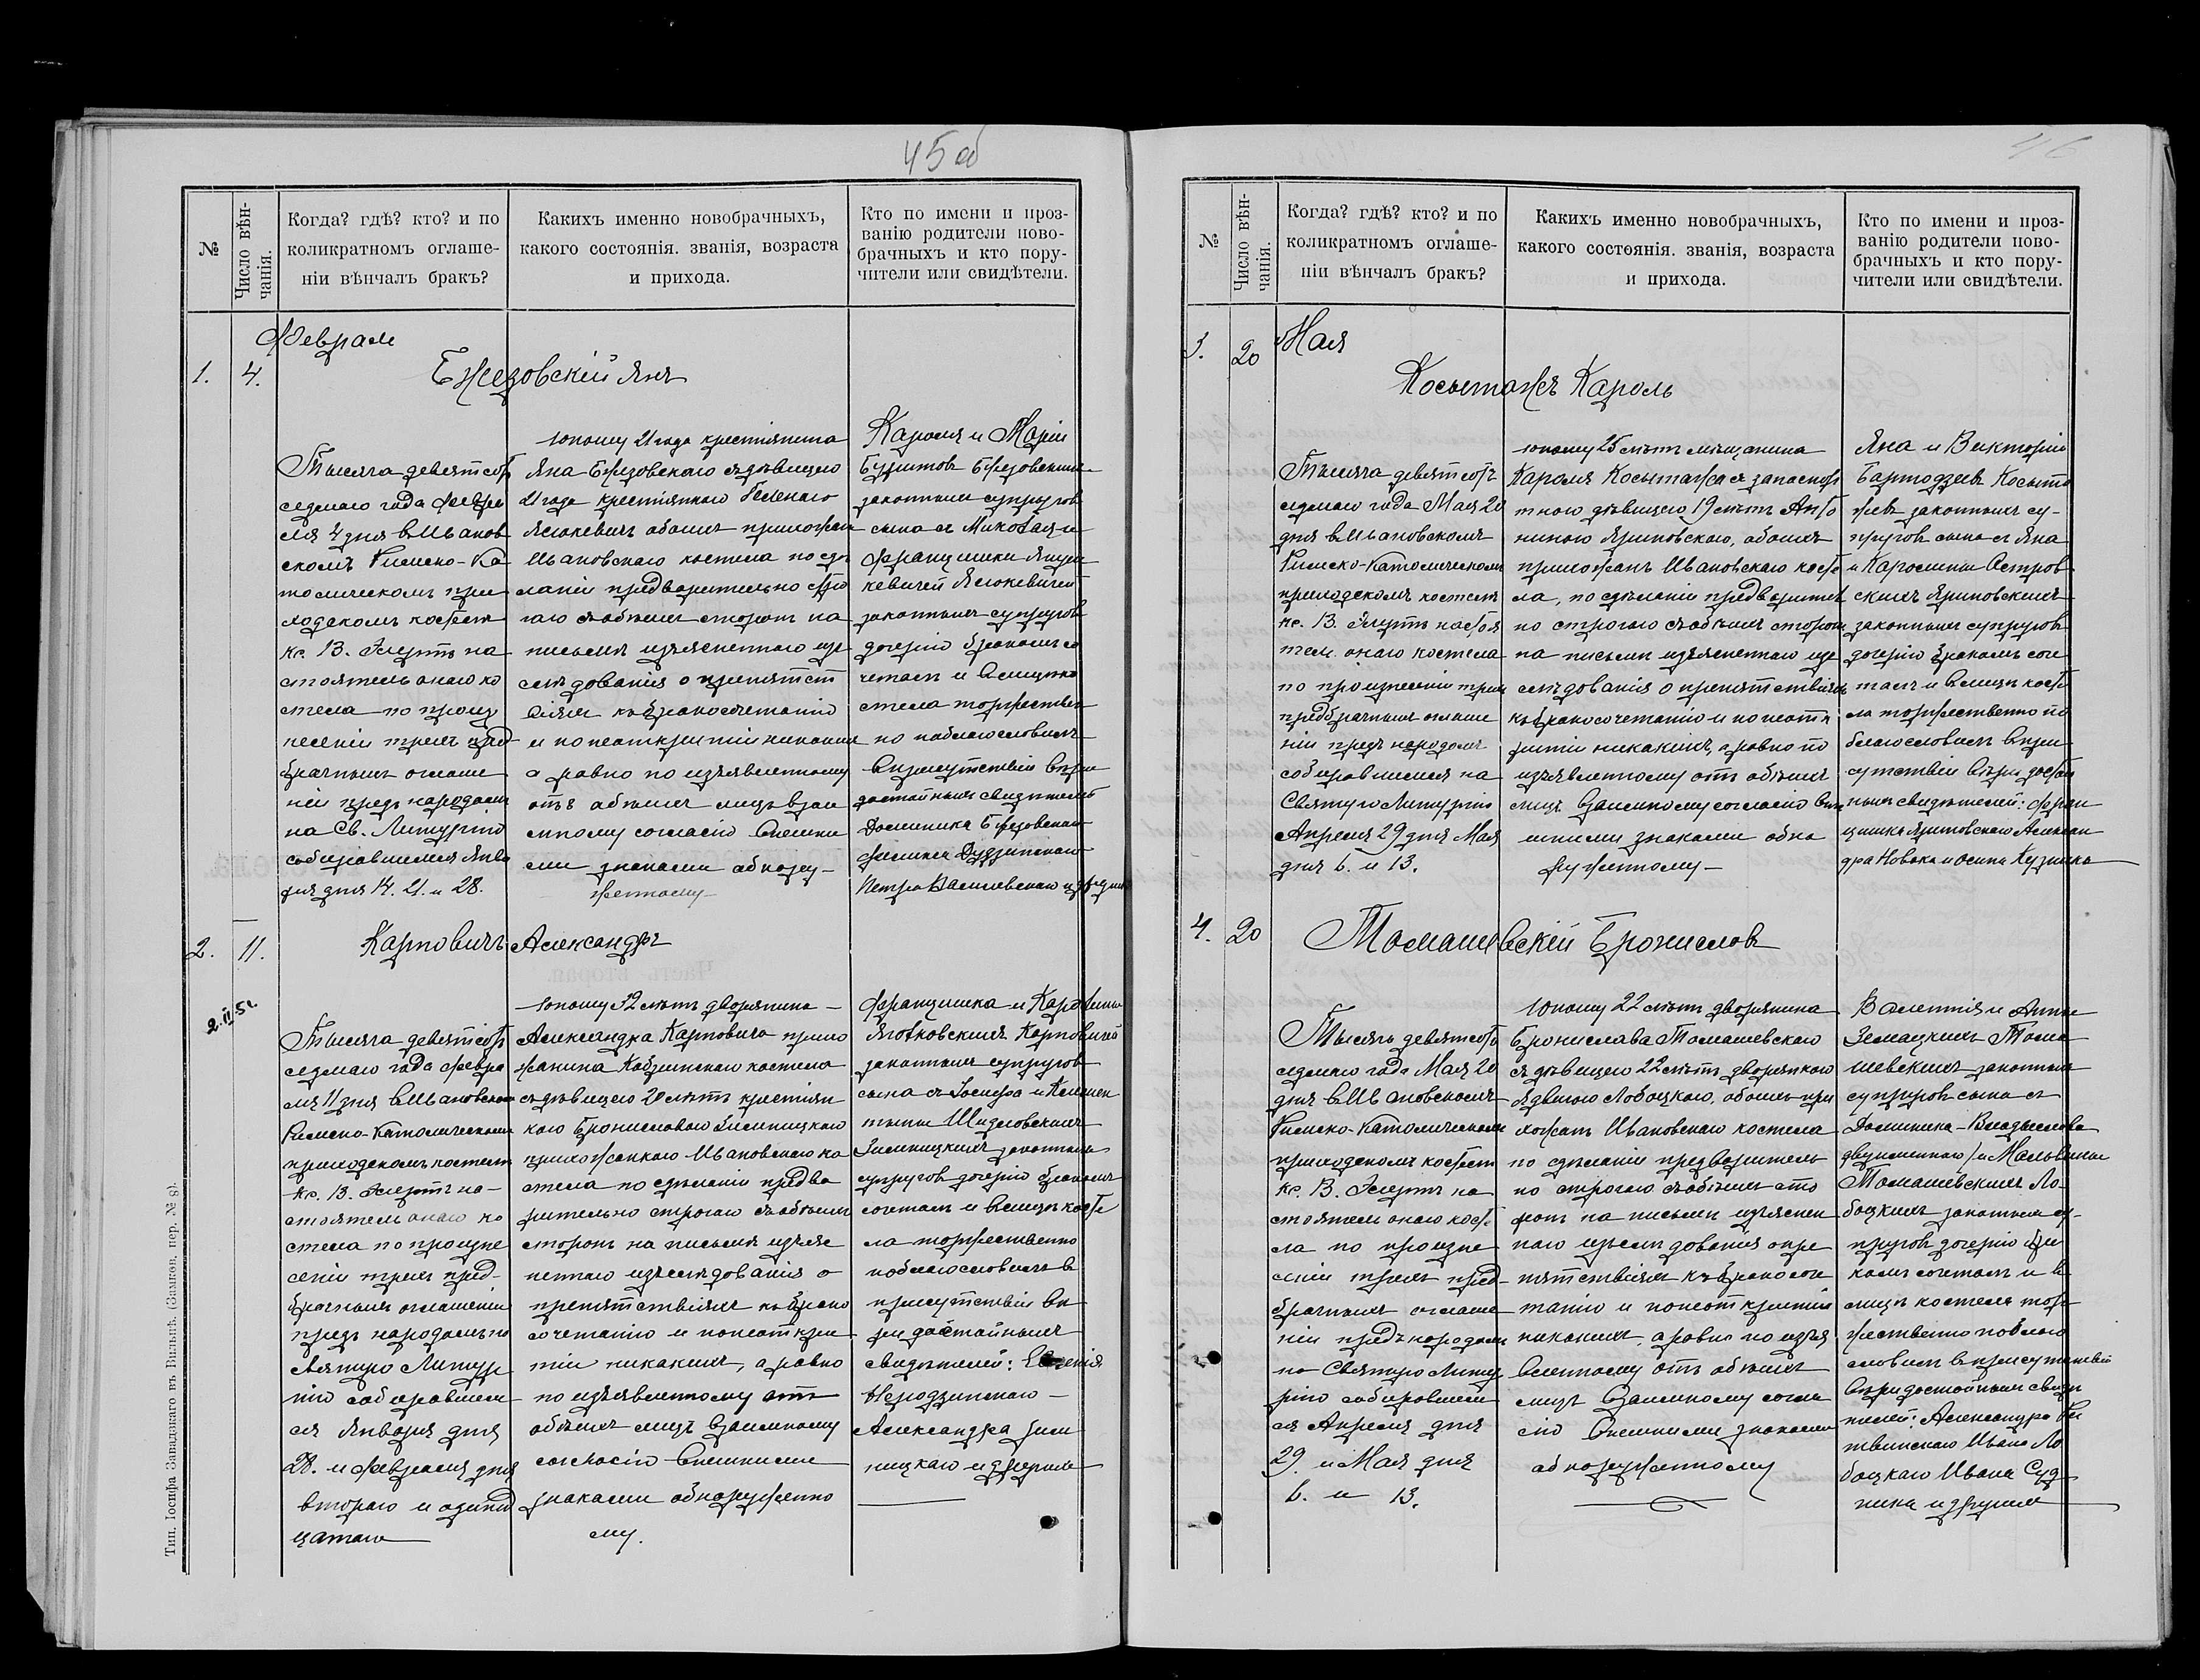 45 об
№
Число вѣн-
чанія.
Когда? гдѣ? кто? и по
коликратномъ оглаше-
ніи вѣнчалъ бракъ?
Какихъ именно новобрачныхъ,
какого состоянія. званія, возраста
и прихода.
Кто по имени и проз-
ванію родители ново-
брачныхъ и кто пору-
чители или свидѣтели.
Февраля
1. 4.
Бжезовскій Янъ
Тысяча девятсотъ
седмаго года Февра
ля 4 дня в Иванов
скомъ Римско-Ка
толическомъ при
ходскомъ костел
кс. В. на
стоятель онаго ко
стела по произ
несеніи трехъ пред
брачныхъ оглаше
ній предъ народомъ
на Св. Литургію
собиравшимся Янва
ря дня 14. 21. и 28.
юношу 21 года крестіянина
Яна Бжезовскаго съ дѣвицею
21 года крестіянкою Геленою
Ясюкевичъ обоихъ прихожан
Ивановскаго костела по сдѣ
ланіи предварительно стро
гаго съ обѣихъ сторонъ на
письмѣ изъясненнаго изъ
слѣдованія о препятст
віяхъ къ бракосочетанію
и по неоткрытіи никакихъ
а равно по изъявленному
отъ обѣихъ лицъ взаи
мному согласію внѣшни
ми знаками обнару-
женному
Кароля и Маріи
Бжезовскихъ
законныхъ супруговъ
сына съ Миколая и
Францишки
Ясюкевичей
законныхъ супруговъ
дочерію бракомъ со
четалъ и в лицѣ ко
стела торжествен
но поблагословилъ
в присутствіи вѣро
достойныхъ свидѣтелей
Доминика Бжезовскаго
Феликса Дудзинскаго
Петра Василевскаго и других
2. 11.
Карповичъ Александръ
2.IV.51.
Тысяча девятсотъ
седмаго года Февра
ля 11 дня в Ивановском
Римско-Католическомъ
приходскомъ костел
кс. В. на-
стоятель онаго ко
стела по произне
сеніи трехъ пред-
брачныхъ оглашеній
предъ народомъ на
Святую Литур
гію собиравшим
ся Января дня
28. и Февраля дня
втораго и одинад
цатаго
юношу 32 лѣтъ дворянина
Александра Карповича прихо
жанина Кобринскаго костела
съ дѣвицею 20 лѣтъ крестіян
кою Брониславою Зилиницкою
прихожанкою Ивановскаго ко
стела по сдѣланіи предва
рительно строгаго съ обѣихъ
сторонъ на письмѣ изъяс
неннаго изъслѣдованія о
препятствіяхъ къ брако
сочетанію и по неоткры
тіи никакихъ, а равно
по изъявленному отъ
обѣихъ лицъ взаимному
согласію внѣшними
знаками обнаруженно
му.
Францишка и Каролины
Карповичей
законныхъ супруговъ
сына съ Іосифа и Клемен
тины Шидловскихъ
Зилиницкихъ законныхъ
супруговъ дочерію бракомъ
сочеталъ и в лицѣ косте
ла торжественно
поблагословилъ в
присутствіи вѣ
ро достойныхъ
свидѣтелей: Евгенія
Александра Зили
ницкаго и другихъ
46
№
Число вѣн-
чанія.
Когда? гдѣ? кто? и по
коликратномъ оглаше-
ніи вѣнчалъ бракъ?
Какихъ именно новобрачныхъ,
какого состоянія. званія, возраста
и прихода.
Кто по имени и проз-
ванію родители ново-
брачныхъ и кто пору-
чители или свидѣтели.
3. 20
Мая
Косытожъ Кароль
Тысяча девятсотъ
седмаго года Мая 20
дня в Ивановскомъ
Римско-Католическомъ
приходскомъ костелѣ
кс. В. настоя
тель онаго костела
по произнесеніи трехъ
предбрачныхъ оглаше
ній предъ народомъ
собиравшимся на
Святую Литургію
Апреля 29 дня Мая
дня 6. и 13.
юношу 25 лѣтъ мѣщанина
Кароля Косытожа съ
дѣвицею 19 лѣтъ Анто
ниною Яриновскою, обоихъ
прихожанъ Ивановскаго косте
ла, по сдѣланіи предварител
но строгаго съ обѣихъ сторонъ
на письмѣ изъясненнаго изъ
слѣдованія о препятствіяхъ
къ бракосочетанію и по неотк
рытіи никакихъ, а равно по
изъявленному отъ обѣихъ
лицъ взаимному согласію внѣ
шними знаками обна
руженному —
Яна и Викторіи
Косыто
жевъ законныхъ су-
пруговъ сына съ Яна
и Каролины Остров
скихъ Яриновскихъ
законныхъ супруговъ
дочерію бракомъ соче
талъ и в лицѣ косте
ла торжественно по
благословилъ в при
сутствіи вѣро достой
ныхъ свидѣтелей: Фран
цишка Яриновскаго Алексан
дра Новака и Осипа
4. 20
Томашевскій Брониславъ
Тысяча девятсотъ
седмаго года Мая 20
дня в Ивановскомъ
Римско-Католическомъ
приходскомъ костел
кс. В. на
стоятель онаго косте
ла по произне
сеніи трехъ пред-
брачныхъ оглаше
ній предъ народомъ
на Святую Литур
гію собиравшим
ся Апреля дня
29. и Мая дня
6. и 13.
юношу 22 лѣтъ дворянина
Бронислава Томашевскаго
съ дѣвицею 22 лѣтъ дворянкою
Ядвигою Лобоцкою, обоихъ при
хожанъ Ивановскаго костела
по сдѣланіи предваритель
но строгаго съ обѣихъ сто
ронъ на письмѣ изъяснен
наго изъслѣдованія о пре
пятствіяхъ къ бракосоче
танію и по неоткрытіи
никакихъ, а равно по изъя
вленному отъ обѣихъ
лицъ взаимному согла
сію внѣшними знаками
обнаруженному
Валентія и Анны
Земацкихъ Тома
шевскихъ законныхъ
супруговъ сына съ
Доминика-Владыслава
двуименнаго и Мальвины
Томашевскихъ Ло
боцкихъ законныхъ су-
пруговъ дочерію бра
комъ сочеталъ и в
лицѣ костела тор
жественно поблаго
словилъ в присутствіи
вѣро достойныхъ свидѣ
телей: Александра
Ивана Ло
боцкаго Ивана Суд
ника и другихъ
Тип. Іосифа Завадзкаго въ Вильнѣ. (Замков. пер. № 8).